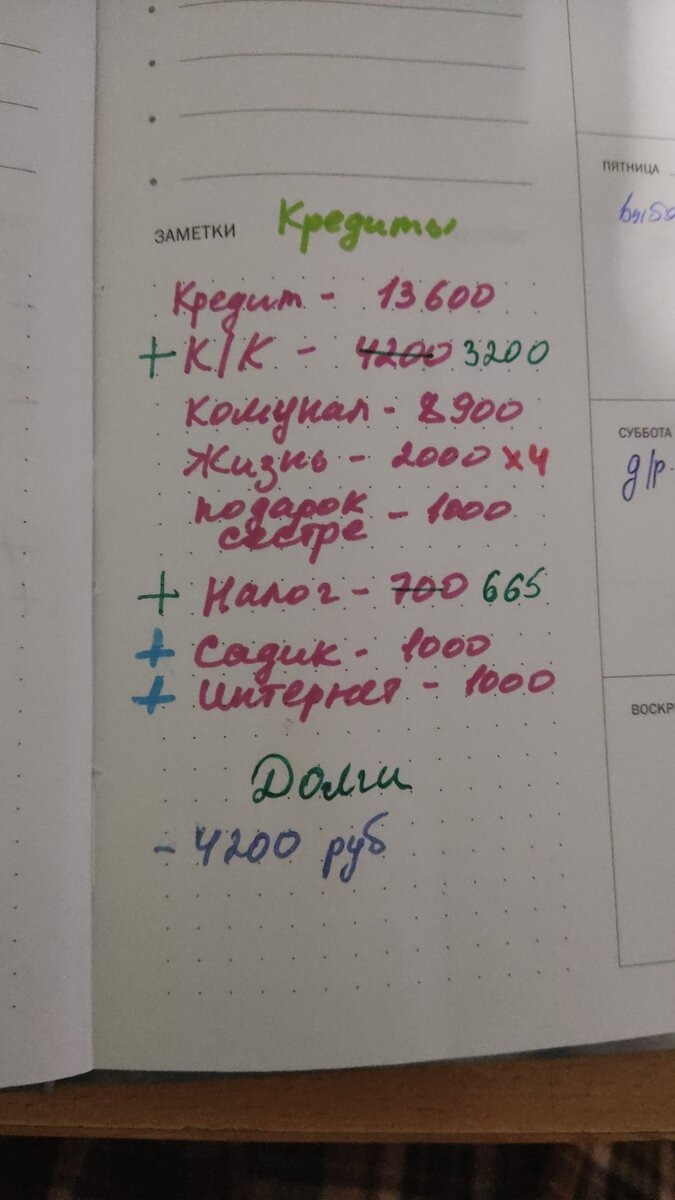 ПЯТНИЦА
ЗАМЕТКИ Кредиты
Кредит - 13600
+ К/К - 4200 3200
Комунал - 8900
Жизнь - 2000 x4
подарок
сестре - 1000
+ Налог - 700 665
+ Садик - 1000
+ Интернет - 1000
СУББОТА
д/р.
ВОСКР
Долги
- 4200 руб